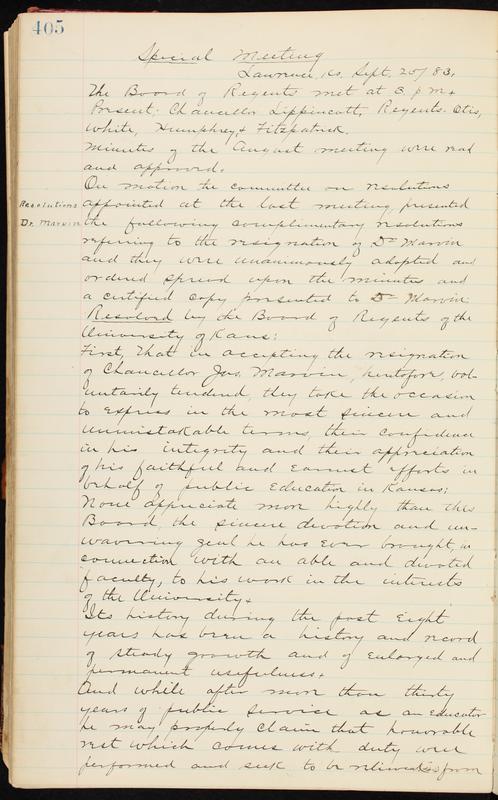 405
Special Meeting
Lawrence, Ks. Sept. 25/83.
The Board of Regents met at 3 p m.
Present: Chancellor Lippincott, Regents Otis,
White, Humphrey, & Fitzpatrick.
Minutes of the August meeting were read
and approved.
On motion the committee on resolutions
Resolutions appointed at the last meeting, presented
Dr. Marvin the following complimentary resolutions
referring to the resignation of Dr Marvin
and they were unanimously adopted and
ordered spread upon the minutes and
a certified copy presented to Dr Marvin
Resolved by the Board of Regents of the
University of Kans:
First, That in accepting the resignation
of Chancellor Jas. Marvin, heretofore, vol-
untarily tendered, they take the occasion
to express in the most sincere and
unmistakable terms, their confidence
in his integrity and their appreciation
of his faithful and earnest efforts in
behalf of public Education in Kansas;
None appreciate more highly than this
Board, the sincere devotion and un-
wavering zeal he has ever brought, in
connection with an able and devoted
faculty, to his work in the interests
of the University.
Its history during the past eight
years has been a history and record
of steady growth and of enlarged and
permanent usefulness.
And while after more than thirty
years of public service as an educator
he may properly claim that honorable
rest which comes with duty well
performed and seek to be relieved from